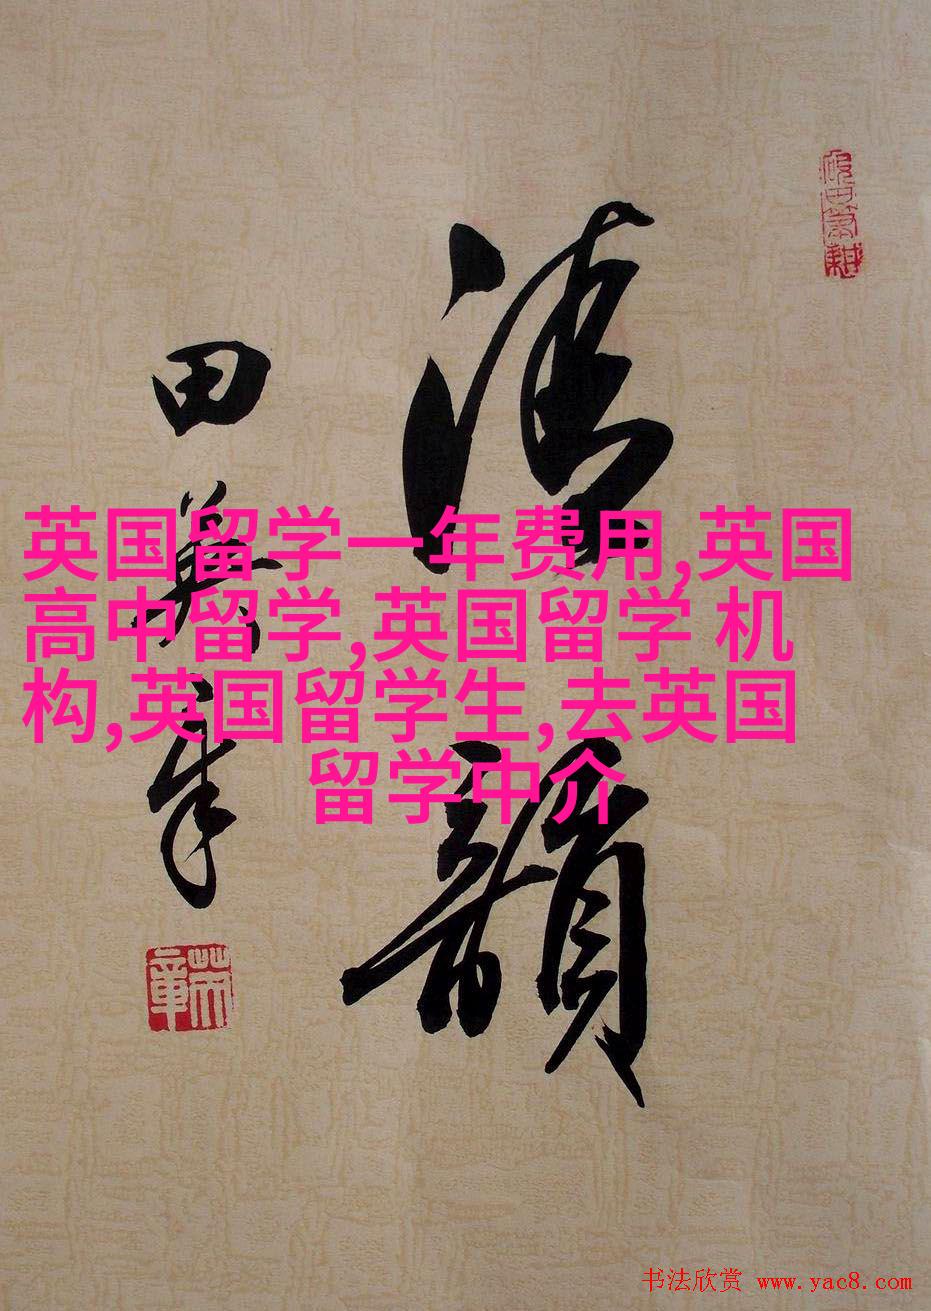 清韻
田英章
英章
英国留学一年费用,英国
高中留学,英国留学 机
构,英国留学生,去英国
留学中介
书法欣赏 www.yac8.com